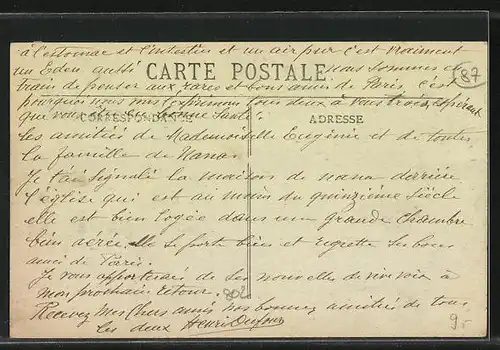 à l'estomac et l'intestin et un air pur c'est vraiment
un Eden aussi nous sommes en
CARTE POSTALE
87
train de penser aux rares et bons amis de Paris, c'est
pourquoi nous nous exprimons tous deux à vous trois espérant
CORRESPONDANCE
ADRESSE
que vous êtes en bonne santé.
les amitiés de Mademoiselle Eugénie et de toute
la famille de Nana.
Je t'ai signalé la maison de nana derrière
l'église qui est au moins du quinzième siècle
elle est bien logée dans une grande chambre
bien aérée, elle se porte bien et regrette ses bons
amis de Paris.
Je vous apporterai de ses nouvelles de vive voix à
mon prochain retour.
802
Recevez mes chers amis nos bonnes amitiés de tous
les deux Henri Dufour
9.-